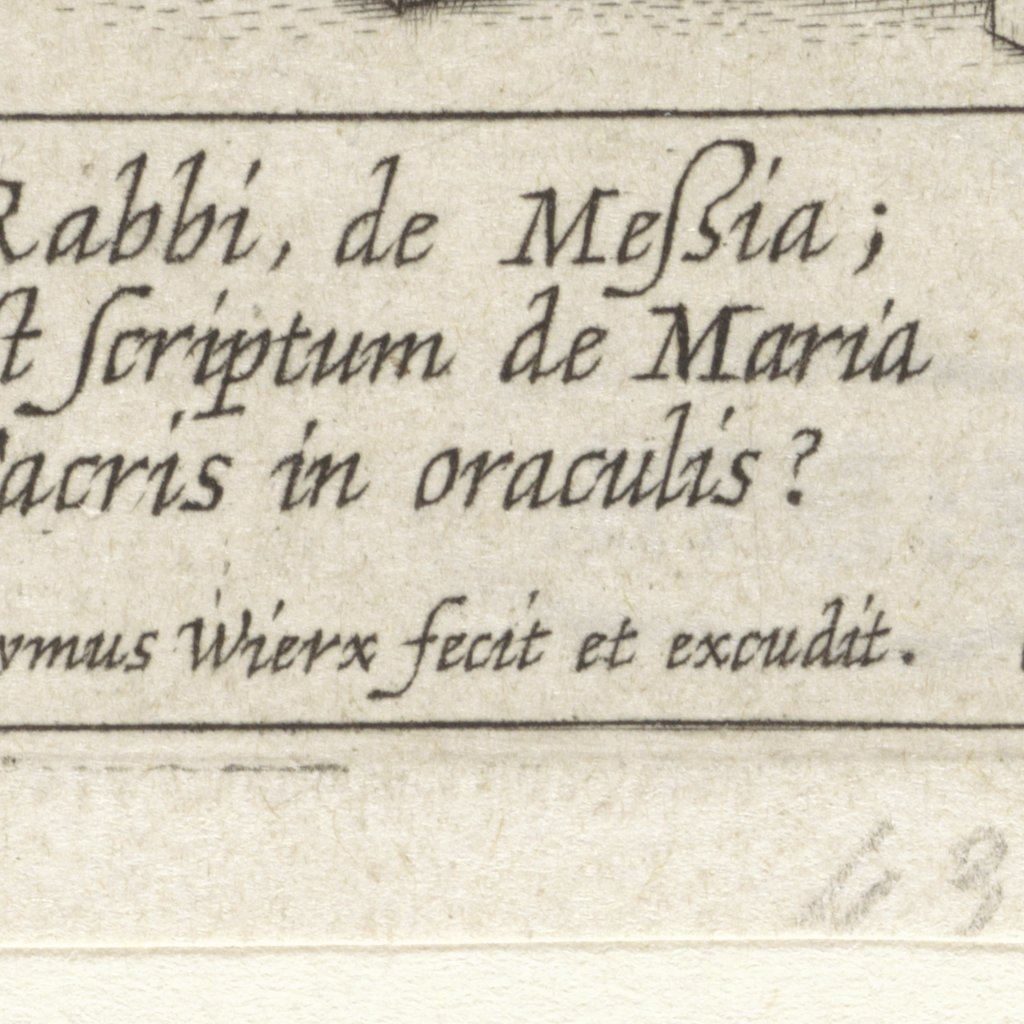 Rabbi, de Meßia;
scriptum de Maria
sacris in oraculis?
ymus Wierx fecit et excudit.
63